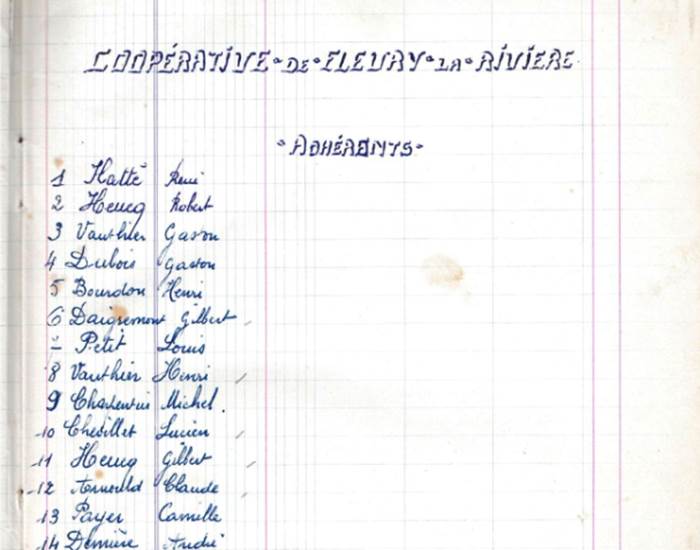 COOPÉRATIVE DE FLEURY LA RIVIERE
ADHÉRENTS
1 Hatté René
2 Heucq Robert
3 Vauthier Gaston
4 Dubois Gaston
5 Bourdon Henri
6 Daigremont Gilbert
7 Petit Louis
8 Vauthier Henri
9 Charlentin Michel
10 Chevillet Lucien
11 Heucq Gilbert
12 Arnould Claude
13 Payer Camille
14 Demière André